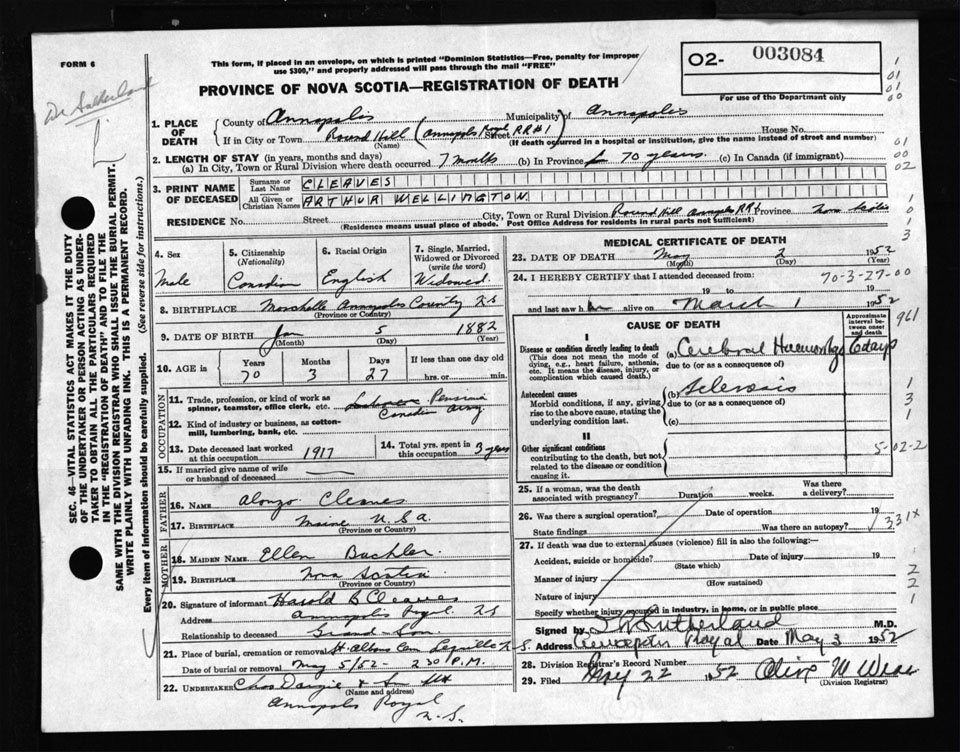 FORM 6
This form, if placed in an envelope, on which is printed "Dominion Statistics—Free, penalty for improper
use $300," and properly addressed will pass through the mail "FREE"
O2- 003084
For use of the Department only
Dr Sutherland
PROVINCE OF NOVA SCOTIA—REGISTRATION OF DEATH
1. PLACE OF DEATH
County of Annapolis Municipality of Annapolis
If in City or Town Round Hill (Annapolis Royal RR#1 Street House No.
(Name) (If death occurred in a hospital or institution, give the name instead of street and number)
2. LENGTH OF STAY (in years, months and days)
(a) In City, Town or Rural Division where death occurred 7 months (b) In Province for 70 years. (c) In Canada (if immigrant)
3. PRINT NAME OF DECEASED
Surname or Last Name CLEAVES
All Given or Christian Names ARTHUR WELLINGTON
RESIDENCE No. Street City, Town or Rural Division Round Hill Annapolis RR1 Province Nova Scotia
(Residence means usual place of abode. Post Office Address for residents in rural parts not sufficient)
4. Sex
Male
5. Citizenship
(Nationality)
Canadian
6. Racial Origin
English
7. Single, Married, Widowed or Divorced
(write the word)
Widowed
8. BIRTHPLACE Annapolis County N.S
(Province or Country)
9. DATE OF BIRTH Jan 5 1882
(Month) (Day) (Year)
10. AGE in
Years Months Days If less than one day old
70 3 27 hrs. or min.
OCCUPATION
11. Trade, profession, or kind of work as
spinner, teamster, office clerk, etc. Pension
Canadian Army
12. Kind of industry or business, as cotton-
mill, lumbering, bank, etc.
13. Date deceased last worked at this occupation 1917
14. Total yrs. spent in this occupation 3 years
15. If married give name of wife
or husband of deceased
FATHER
16. NAME Alonzo Cleaves
17. BIRTHPLACE Maine U.S.A.
(Province or Country)
MOTHER
18. MAIDEN NAME Ellen
19. BIRTHPLACE Nova Scotia
(Province or Country)
20. Signature of informant Harold B Cleaves
Address Annapolis Royal N.S
Relationship to deceased Grand-Son
21. Place of burial, cremation or removal St. Albans Cem Lequille N.S.
Date of burial or removal May 5/52 - 2 30 P.M.
22. UNDERTAKER Chas Dargie & Son
(Name and address)
Annapolis Royal
N.S.
MEDICAL CERTIFICATE OF DEATH
23. DATE OF DEATH May 2 1952
(Month) (Day) (Year)
24. I HEREBY CERTIFY that I attended deceased from:
70-3-27-00
19 to 19
and last saw h alive on March 1 1952
CAUSE OF DEATH
Approximate interval between onset and death
I
Disease or condition directly leading to death
(This does not mean the mode of dying, e.g., heart failure, asthenia, etc. It means the disease, injury, or complication which caused death.)
(a) Cerebral Haemorrhage 6 days
due to (or as a consequence of)
Antecedent causes
Morbid conditions, if any, giving rise to the above cause, stating the underlying condition last.
(b) Sclerosis
due to (or as a consequence of)
(c)
II
Other significant conditions
contributing to the death, but not related to the disease or condition causing it.
25. If a woman, was the death
associated with pregnancy? Duration weeks. Was there a delivery?
26. Was there a surgical operation? Date of operation 19
State findings Was there an autopsy?
331X
27. If death was due to external causes (violence) fill in also the following:—
Accident, suicide or homicide? Date of injury 19
(State which)
Manner of injury
(How sustained)
Nature of injury
Specify whether injury occurred in industry, in home, or in public place
Signed by Sutherland M.D.
Address Royal Date May 3 1952
28. Division Registrar's Record Number
29. Filed May 22 1952 M
(Division Registrar)
961
5-02-2
SEC. 46—VITAL STATISTICS ACT MAKES IT THE DUTY
OF THE UNDERTAKER OR PERSON ACTING AS UNDER-
TAKER TO OBTAIN ALL THE PARTICULARS REQUIRED
IN THE "REGISTRATION OF DEATH" AND TO FILE THE
SAME WITH THE DIVISION REGISTRAR WHO SHALL ISSUE THE BURIAL PERMIT.
WRITE PLAINLY WITH UNFADING INK. THIS IS A PERMANENT RECORD.
Every item of information should be carefully supplied. (See reverse side for instructions.)